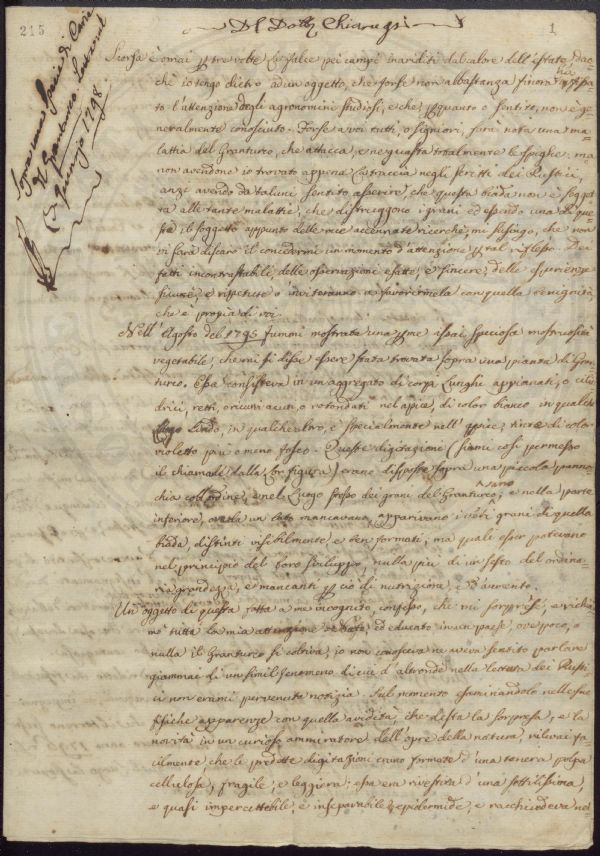 215
Del Dott. Chiarugi
1
Sopra una specie di Carie
del Granturco.
1798.
Scorsa è omai per tre volte la falce pei campi inariditi dal calore dell'estate, dac-
chè io tengo dietro ad un oggetto, che forse non abbastanza finora ha
to l'attenzione degli agronomi studiosi, e che, per quanto ò sentito, non è ge-
neralmente conosciuto. Forse a voi tutti, o signori, sarà nota una ma-
lattia del Granturco, che attacca, e ne guasta totalmente le spighe: ma
non avendone io trovato appena la traccia negli scritti dei Rustici,
anzi avendo da taluni sentito asserire, che questa biada non è sogget-
ta alle tante malattie, che distruggono i grani, ed essendo una di que-
ste il soggetto appunto delle mie accennate ricerche; mi lusingo, che non
vi sarà discaro il concedermi un momento d'attenzione per tal riflesso. Dei
fatti incontrastabili, delle osservazioni esatte, e sincere, delle sperienze
sicure, e ripetute v'inviteranno a favorirmela con quella benignità,
che è propia di voi.
Nell'Agosto del 1795 fummi mostrata una per me assai speciosa mostruosità
vegetabile, che mi si disse essere stata trovata sopra una pianta di Gran-
turco. Essa consisteva in un aggregato di corpi lunghi appianati, o cilin-
drici, retti, o ricurvi acuti, o rotondati nel apice, di color bianco in qualche
luogo lindo, in qualche altro, e specialmente nell'apice, tinte di color
violetto più o meno fosco. Queste digitazioni (siami così permesso
il chiamarle dalla lor figura) erano disposte sopra una piccola pannoc-
chia coll'ordine, e nel luogo stesso dei grani del Granturco; e nella parte
inferiore, ove da un lato mancavano, apparivano i veri grani di quella
biada, distinti visibilmente, e ben formati; ma quali esser potevano
nel principio del loro sviluppo, nulla più di un sesto del ordina-
ria grandezza, e mancanti per ciò di nutrizione, e d'aumento.
Un oggetto di questa fatta a me incognito, confesso, che mi sorprese, e richia-
mò tutta la mia attenzione. Nato, ed educato in un paese, ove poco, o
nulla il Granturco si coltiva, io non conosceva ne aveva sentito parlare
giammai di un simil fenomeno di cui d'altronde nella lettura dei Rusti-
ci non erami pervenuta notizia. Sul momento esaminandolo nelle sue
fisiche apparenze con quella avidità, che desta la sorpresa, e la
novità in un curioso ammiratore dell'opre della natura, rilevai fa-
cilmente che le predette digitazioni erano formate d'una tenera polpa
cellulosa, fragile, e leggiera; essa era rivestita d'una sottilissima,
e quasi impercettibile, e inseparabile epidermide, e racchiudeva nel